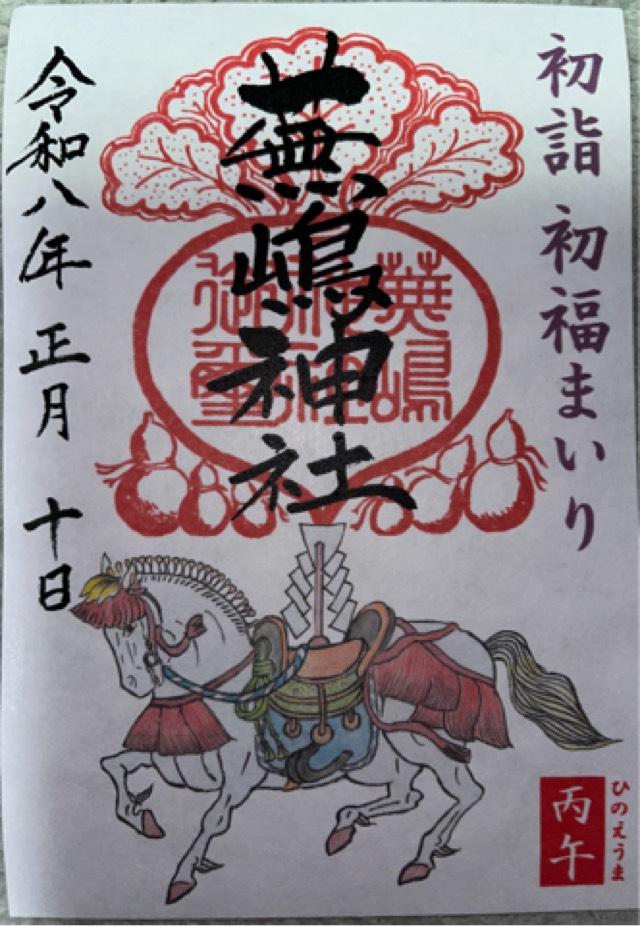 初詣 初福まいり
蕪嶋神社
蕪嶋
神社
御璽
令和八年 正月 十日
ひのえうま
丙午